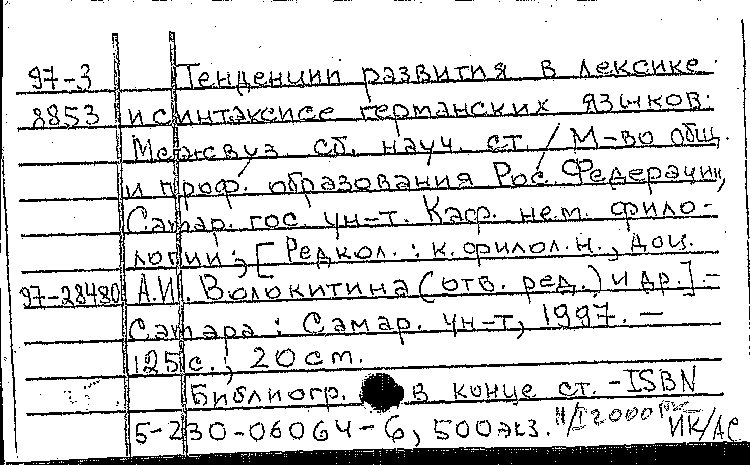 97-3 Тенденции развития в лексике
8853 и синтаксисе германских языков:
Межвуз. сб. науч. ст. / М-во общ.
и проф. образования Рос. Федерации,
Самар. гос. ун-т. Каф. нем. фило-
логии; [Редкол.: к.филол.н., доц.
97-28480 А.И. Волокитина (отв. ред.) и др.]. -
Самара : Самар. ун-т, 1997. —
125 с.; 20 см.
Библиогр. в конце ст. - ISBN
5-230-06064-6, 500 экз. 2000 ИК/АС